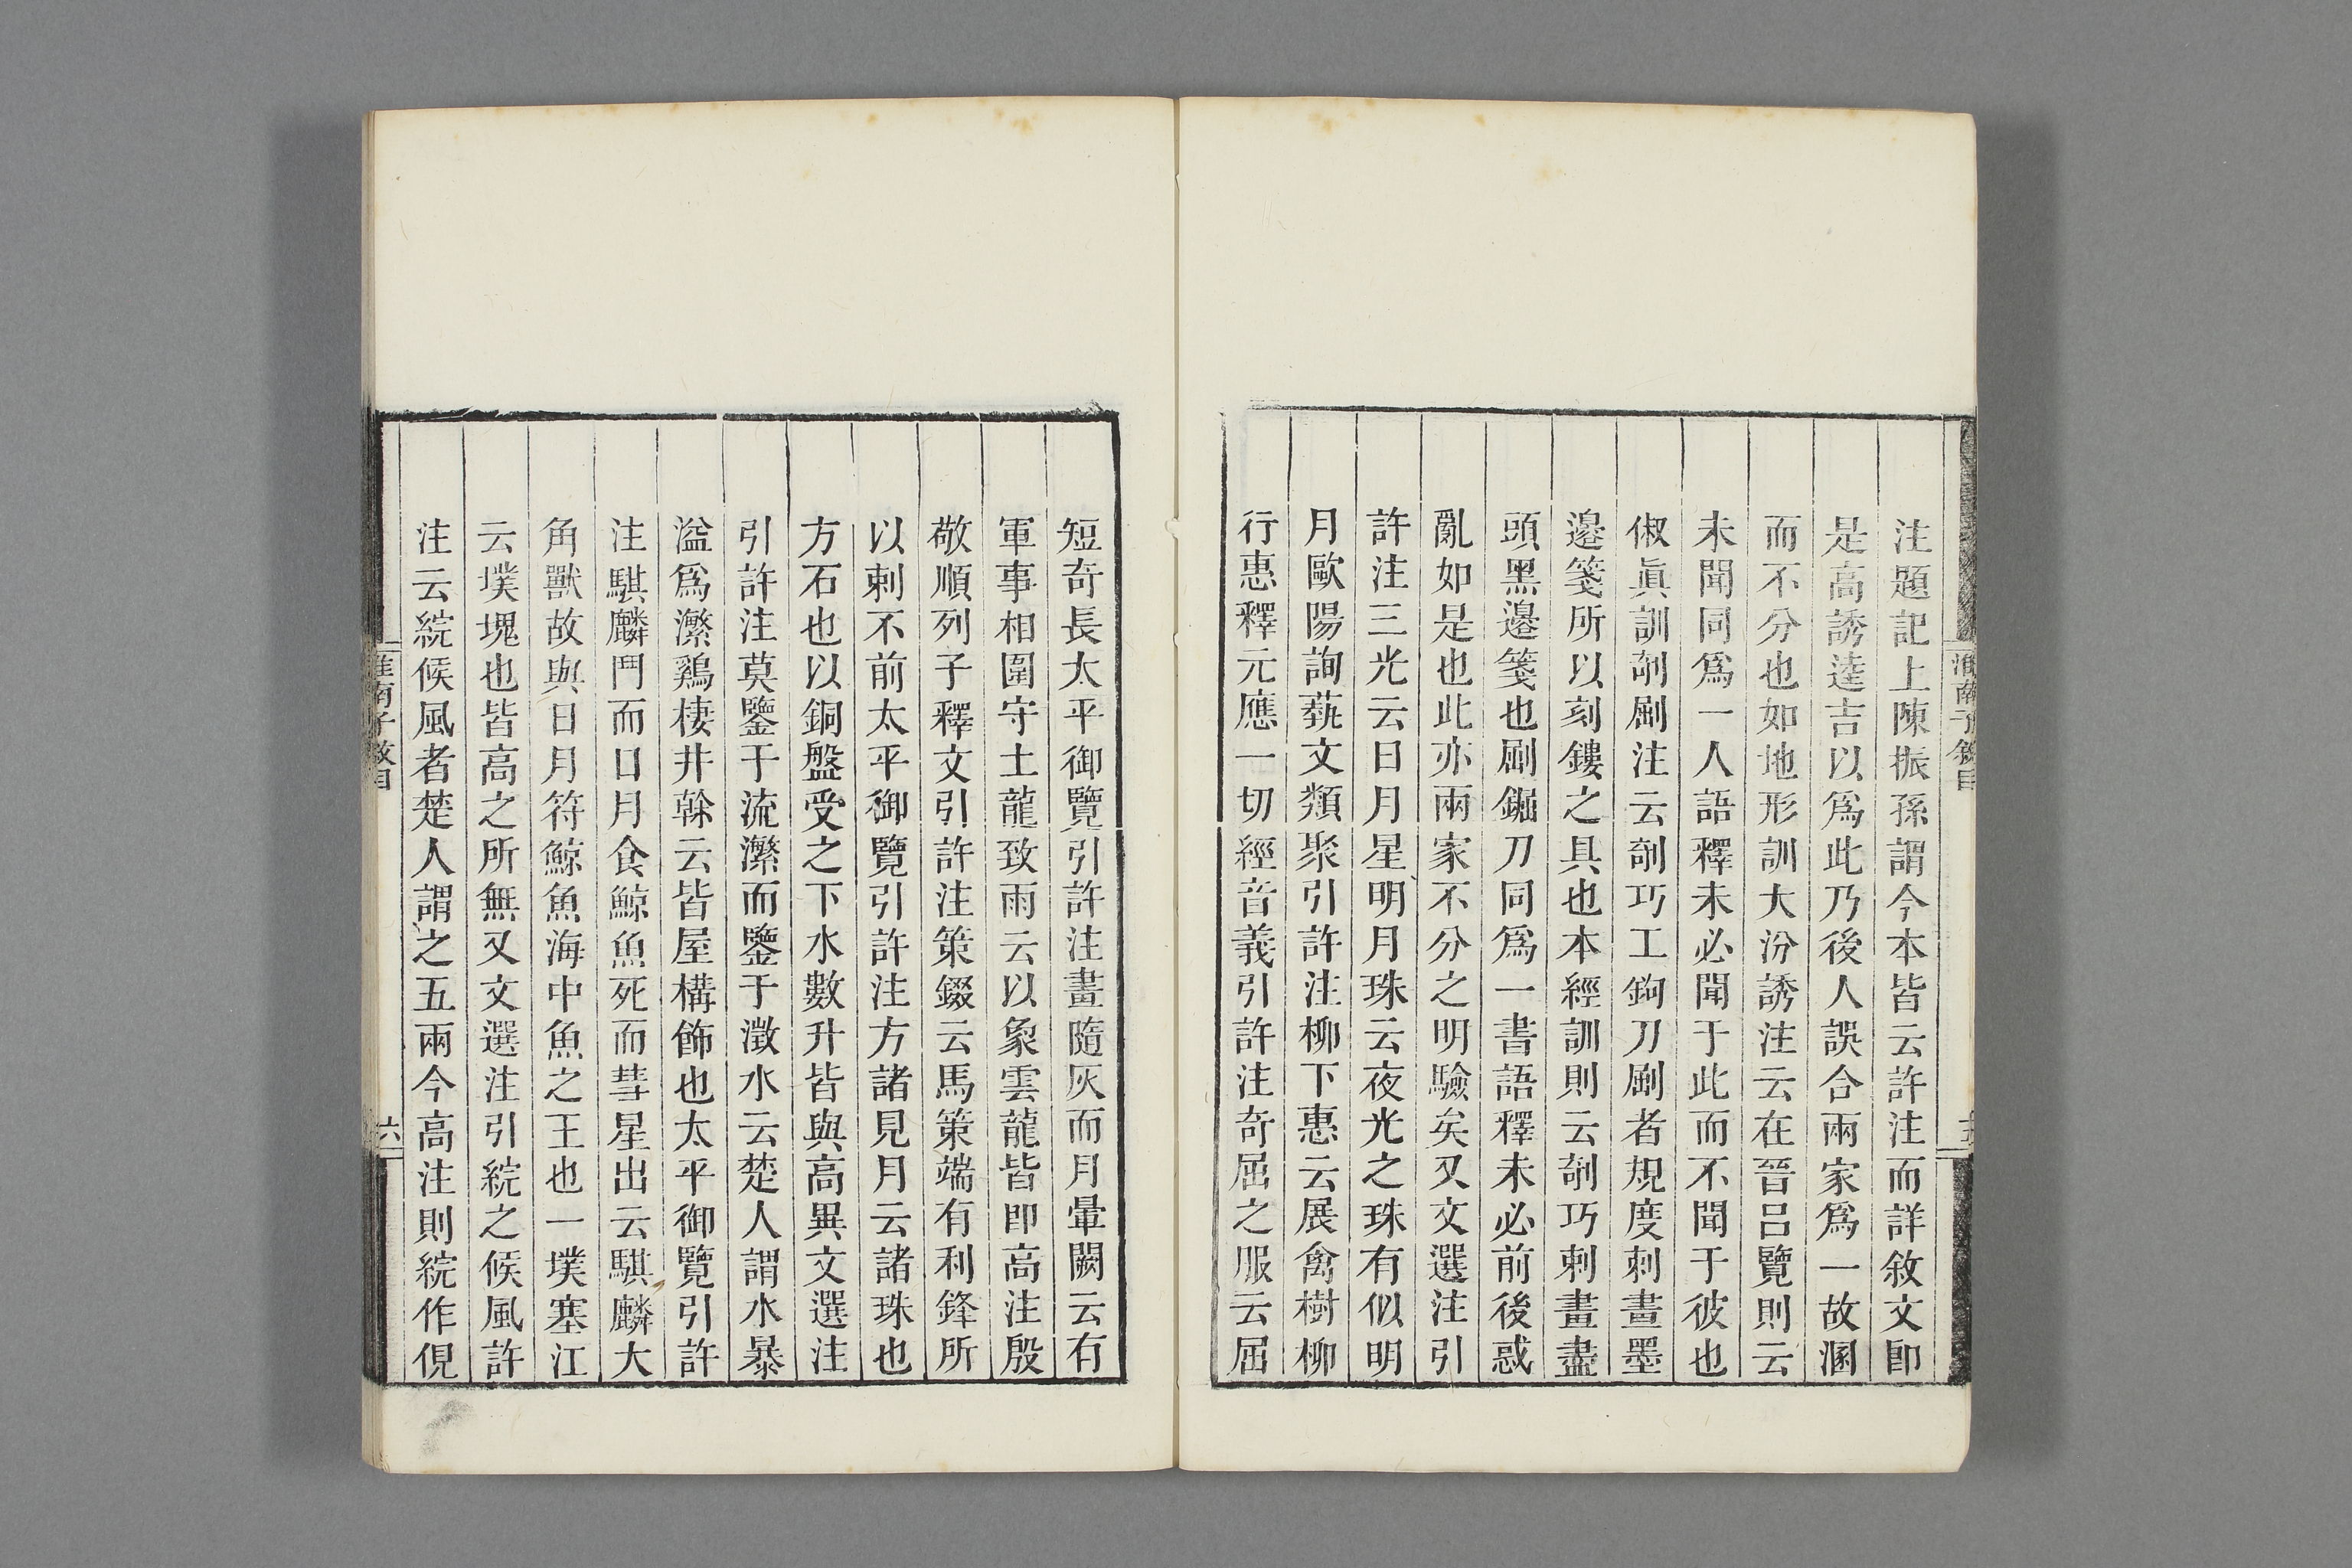 淮南子敘目
五
注題記上陳振孫謂今本皆云許注而詳敘文卽
是高誘逵吉以爲此乃後人誤合兩家爲一故溷
而不分也如地形訓大汾誘注云在晉呂覽則云
未聞同爲一人語釋未必聞于此而不聞于彼也
俶眞訓剞劂注云剞巧工鉤刀劂者規度刺畫墨
邊箋所以刻鏤之具也本經訓則云剞巧刺畫盡
頭黑邊箋也劂鋸刀同爲一書語釋未必前後惑
亂如是也此亦兩家不分之明驗矣又文選注引
許注三光云日月星明月珠云夜光之珠有似明
月歐陽詢蓺文類聚引許注柳下惠云展禽樹柳
行惠釋元應一切經音義引許注奇屈之服云屈
短奇長太平御覽引許注畫隨灰而月暈闕云有
軍事相圍守土龍致雨云以象雲龍皆卽高注殷
敬順列子釋文引許注策錣云馬策端有利鋒所
以刺不前太平御覽引許注方諸見月云諸珠也
方石也以銅盤受之下水數升皆與高異文選注
引許注莫鑒于流瀿而鑒于澂水云楚人謂水暴
溢爲瀿鷄棲井榦云皆屋構飾也太平御覽引許
注騏麟鬥而日月食鯨魚死而彗星出云騏麟大
角獸故與日月符鯨魚海中魚之王也一墣塞江
云墣塊也皆高之所無又文選注引綄之候風許
注云綄候風者楚人謂之五兩今高注則綄作俔
淮南子敘目
六